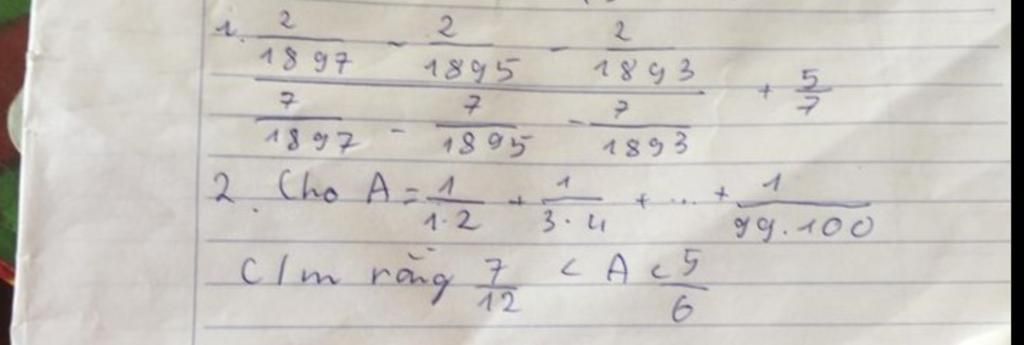 1. \frac{\frac{2}{1897} - \frac{2}{1895} - \frac{2}{1893}}{\frac{7}{1897} - \frac{7}{1895} - \frac{7}{1893}} + \frac{5}{7}
2. Cho A = \frac{1}{1.2} + \frac{1}{3.4} + ... + \frac{1}{99.100}
C/m rằng \frac{7}{12} < A < \frac{5}{6}